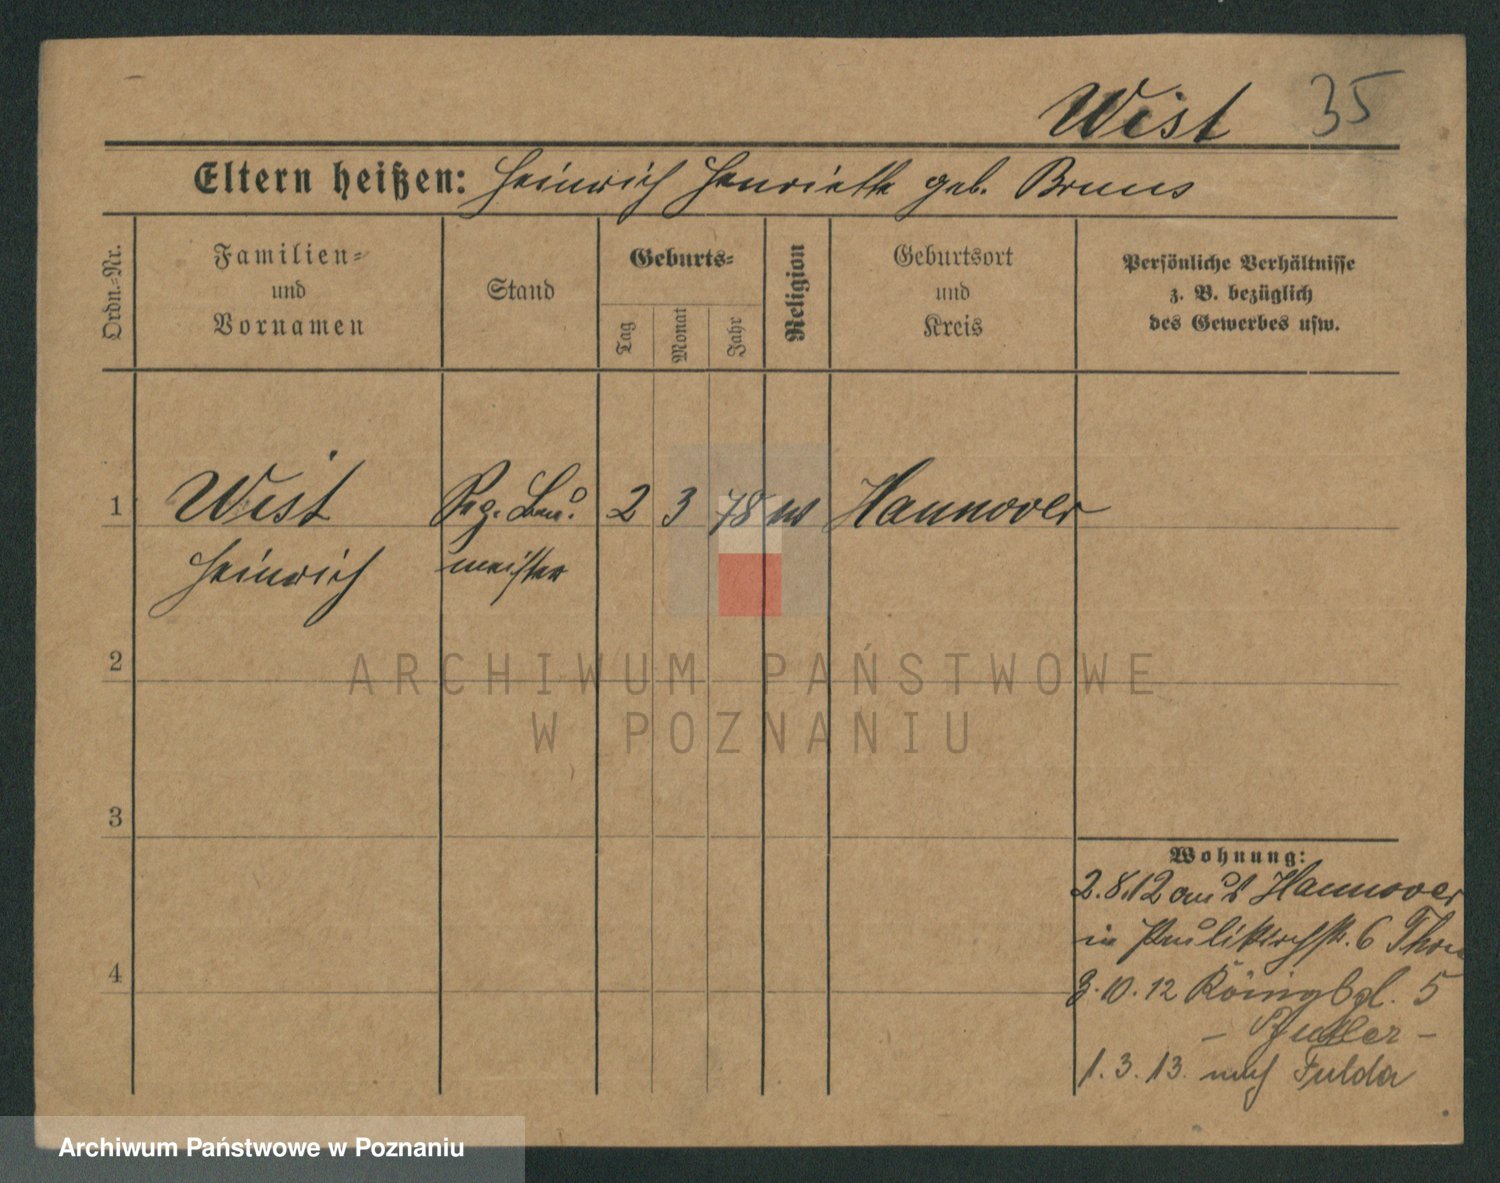 Wist 35
Eltern heißen: Heinrich Henriette geb. Bruns
Ordn.-Nr.
Familien- und Vornamen
Stand
Geburts-
Tag
Monat
Jahr
Religion
Geburtsort und Kreis
Persönliche Verhältnisse
z. B. bezüglich
des Gewerbes usw.
1 Wist Reg. Bau- 2 3 78 Hannover
Heinrich meister
2
ARCHIWUM PAŃSTWOWE
W POZNANIU
3
Wohnung:
2.8.12 aus Hannover
in Paulikirchstr. 6
4
3.10.12 Königspl. 5
1.3.13. nach Fulda
Archiwum Państwowe w Poznaniu